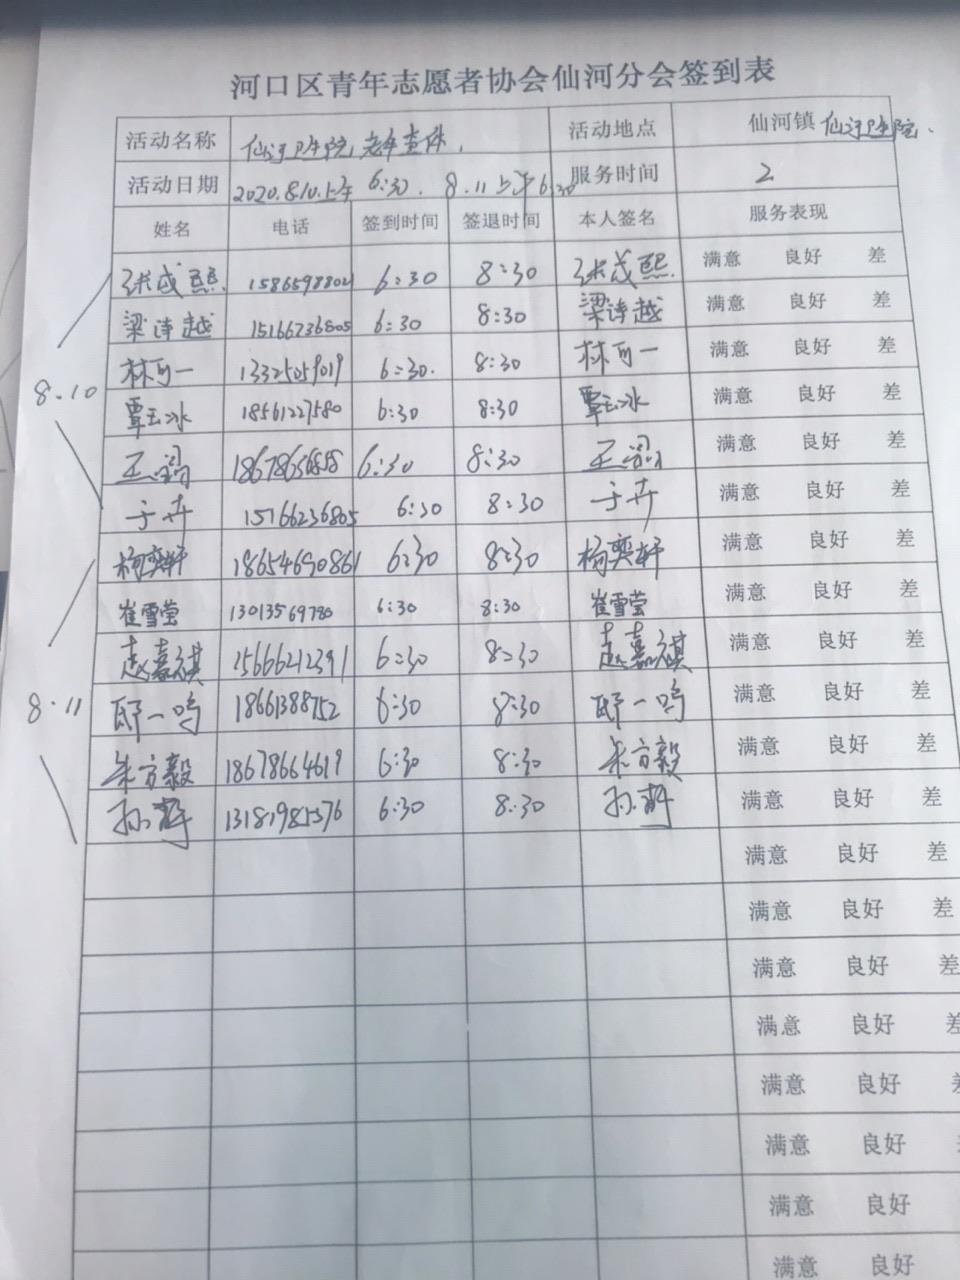 河口区青年志愿者协会仙河分会签到表
活动名称 仙河卫生院老年查体. 活动地点 仙河镇 仙河卫生院.
活动日期 2020.8.10.上午 6:30. 8.11上午6:30 服务时间 2
姓名 电话 签到时间 签退时间 本人签名 服务表现
张成熙. 15865978802 6:30 8:30 张成熙. 满意 良好 差
梁诗越 15166236805 6:30 8:30 梁诗越 满意 良好 差
林可一 13325059019 6:30. 8:30 林可一 满意 良好 差
8.10
覃玉冰 18561227580 6:30 8:30 覃玉冰 满意 良好 差
王 6:30 8:30 王 满意 良好 差
于卉 15166236805 6:30 8:30 于卉 满意 良好 差
杨奕轩 18654690861 6:30 8:30 杨奕轩 满意 良好 差
崔雪莹 13013569780 6:30 8:30 崔雪莹 满意 良好 差
赵嘉祺 15666212391 6:30 8:30 赵嘉祺 满意 良好 差
8.11
邸一鸣 18661388752 6:30 8:30 邸一鸣 满意 良好 差
朱方毅 18678664619 6:30 8:30 朱方毅 满意 良好 差
孙 13181985576 6:30 8:30 孙 满意 良好 差
满意 良好 差
满意 良好 差
满意 良好 差
满意 良好 差
满意 良好
满意 良好
满意 良好
满意 良好